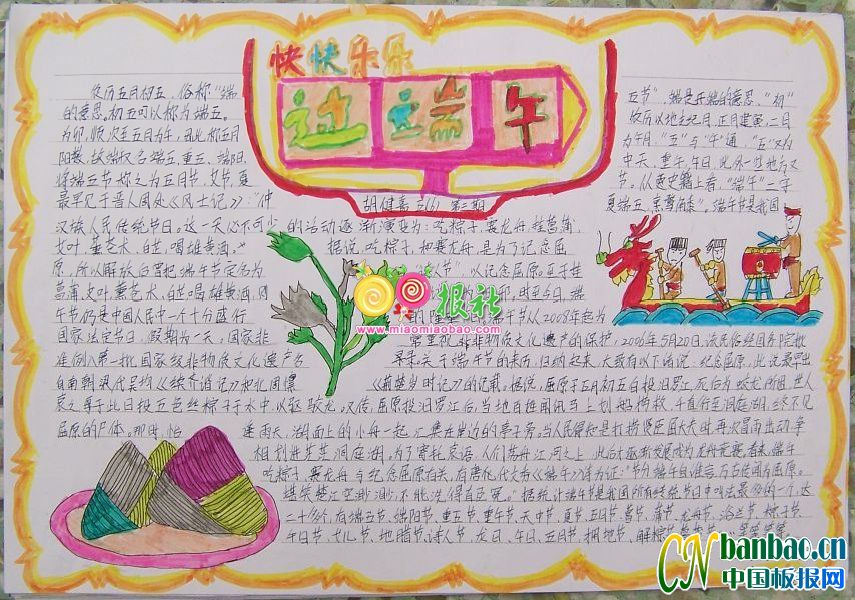 快快乐乐
过端午
胡健 第二期
农历五月初五,俗称"端
五节",端是开端的意思,"初"
的意思。初五可以称为端五。
农历以地支纪月,正月建寅,二月
为卯,顺次至五月为午,因此称五月
为午月,"五"与"午"通,"五"又为
阳数,故端午又名端五、重五、端阳、
中天、重午、午日,此外一些地方又
将端五节称之为五月节、艾节、夏
节。从史籍上看,"端午"二字
最早见于晋人周处《风土记》:"仲
夏端五,烹鹜角黍"。端午节是我国
汉族人民传统节日。这一天必不可少
的活动逐渐演变为:吃粽子,赛龙舟,挂菖蒲、
艾叶,薰苍术、白芷,喝雄黄酒。
据说,吃粽子和赛龙舟,是为了纪念屈
原,所以解放后曾把端午节定名为
"诗人节",以纪念屈原。至于挂
菖蒲、艾叶,薰苍术、白芷,喝雄黄酒,
时至今日,端
午节仍是中国人民中一个十分盛行
端午节从2008年起为
国家法定节日,假期为一天。国家非
常重视非物质文化遗产的保护,2006年5月20日,该民俗经国务院批
准列入第一批国家级非物质文化遗产名
关于端午节的来历,归纳起来,大致有以下诸说:纪念屈原,此说最早出
自南朝梁代吴均《续齐谐记》和北周
《荆楚岁时记》的记载。据说,屈原于五月初五自投汨罗江,死后为蛟龙所困,世人
哀之,每于此日投五色丝粽子于水中,以驱蛟龙。又传,屈原投汨罗江后,当地百姓闻讯马上划船捞救,一直行至洞庭湖,终不见
屈原的尸体。那时,恰
逢雨天,湖面上的小舟一起汇集在岸边的亭子旁。当人民得知是打捞贤臣屈大夫时,再次冒雨出动,争
相划进茫茫洞庭湖。为了寄托哀思,人们荡舟江河之上,此后才逐渐发展成为龙舟竞赛。看来,端午
吃粽子、赛龙舟与纪念屈原相关,有唐代文秀《端午》诗为证:"节分端午自谁言,万古传闻为屈原。
堪笑楚江空渺渺,不能洗得直臣冤。"据统计端午节是我国所有传统节日中叫法最多的一个,达
二十多个,有端五节、端阳节、重五节、重午节、天中节、夏节、五月节、菖节、蒲节、龙舟节、浴兰节、粽子节、
午日节、女儿节、地腊节、诗人节、龙日、午日、
报社
www.miaomiaobao.com
CN banbao.cn
中国板报网